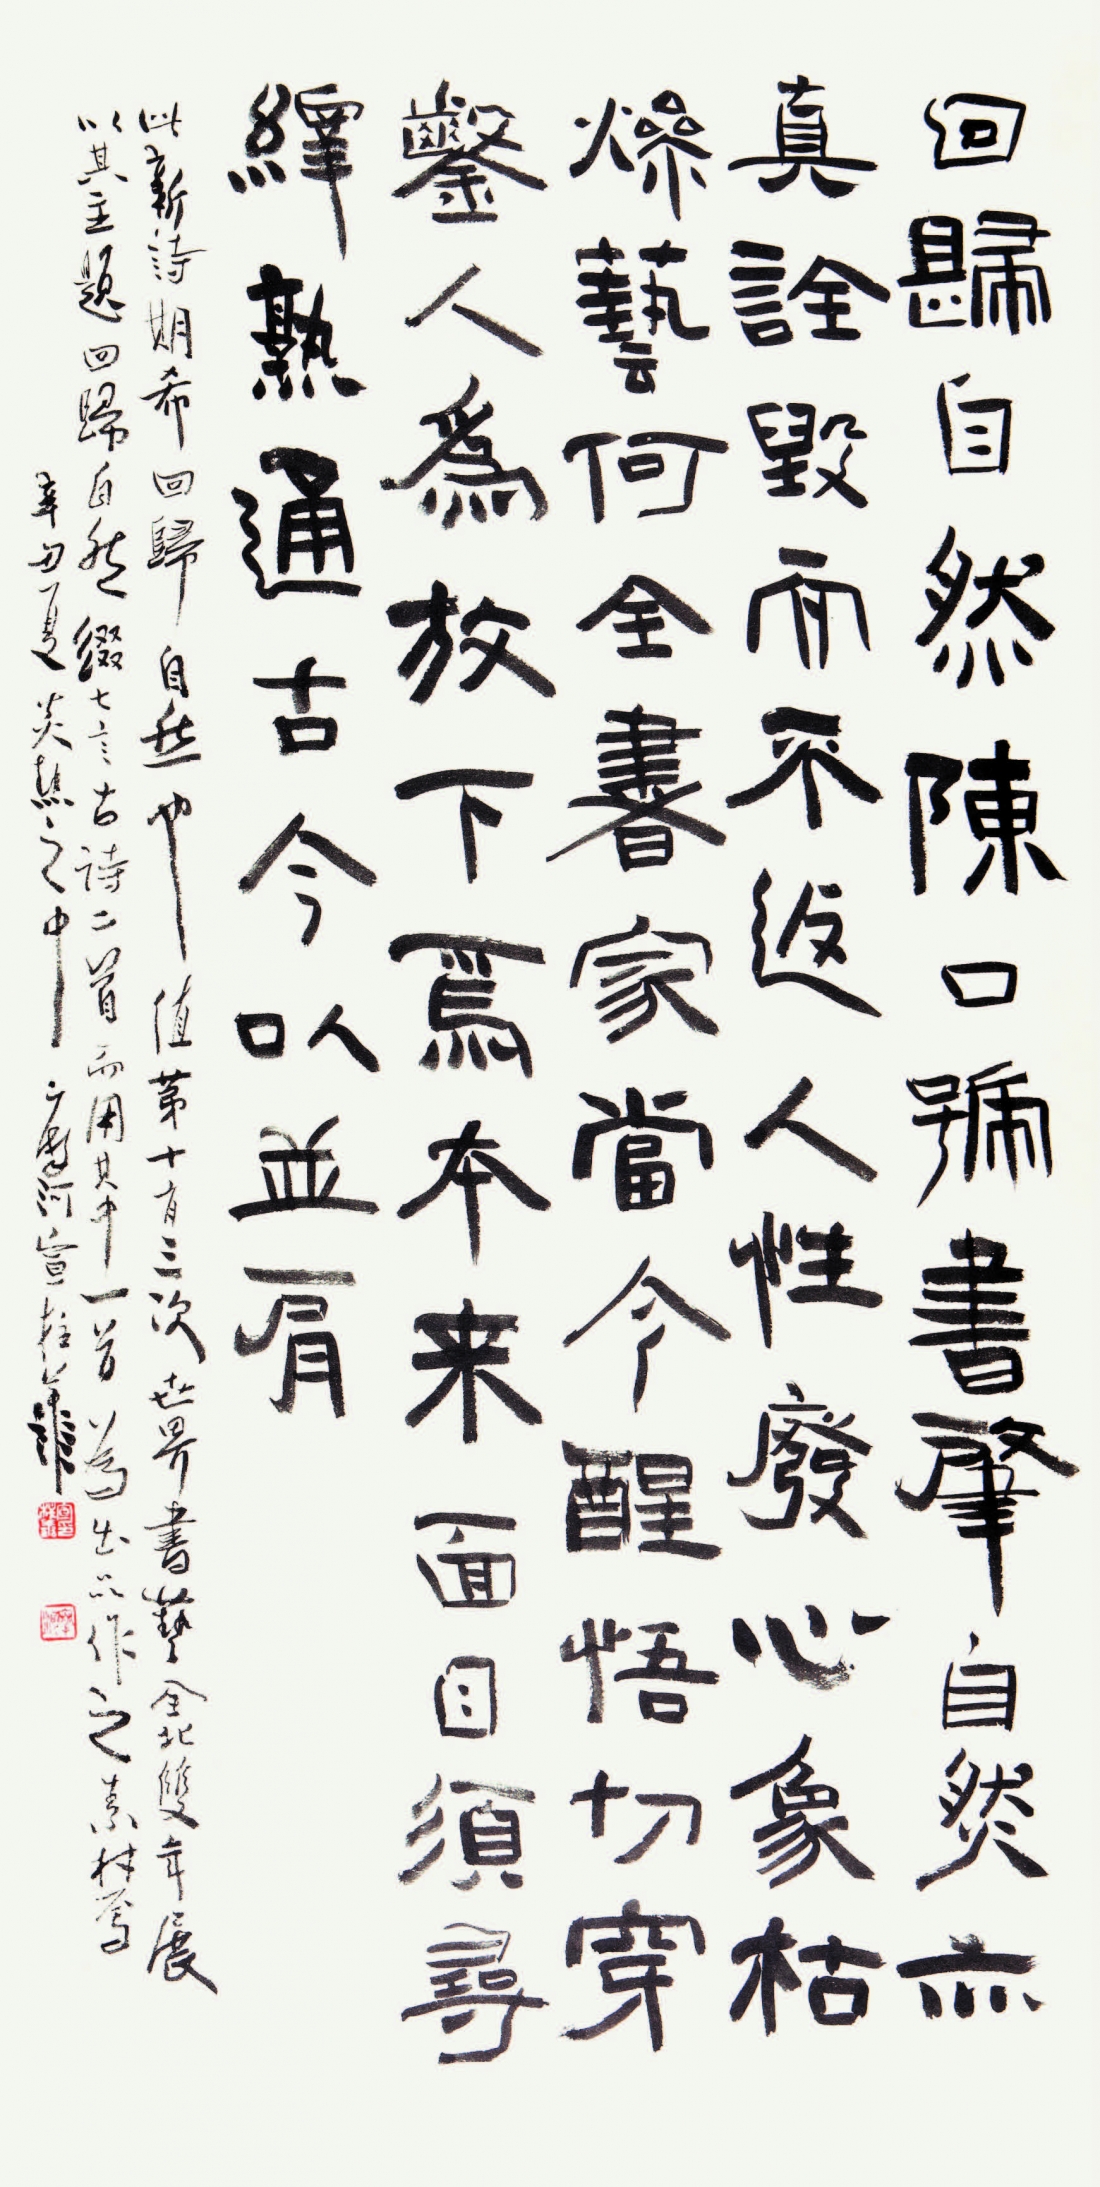 回歸自然陳口號書肇自然亦
真詮毀而不返人性廢心象枯
燥藝何全書家當今醒悟切穿
鑿人為放下焉本来面目須尋
繹熟通古今以並肩
此新詩期希回歸自然也值第十有三次世界書藝全北雙年展
以其主題回歸自然綴七言古詩二首而用其中一首為出品作之素材焉
辛丑夏炎熱之中 河宣柱